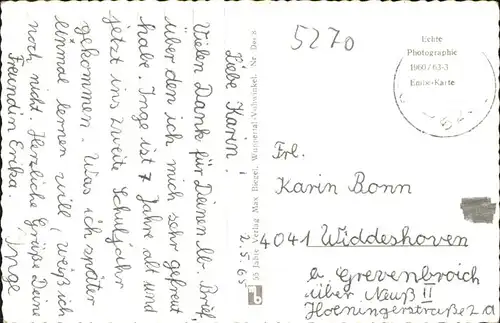 Liebe Karin!
Vielen Dank für Deinen lb. Brief,
über den ich mich sehr gefreut
habe. Inge ist 7 Jahre alt und
jetzt ins zweite Schuljahr
gekommen. Was ich später
einmal lernen will, weiß ich
noch nicht. Herzliche Grüße Deine
Freundin Erika
Inge
2.5.65
35 Jahre Verlag Max Biegel, Wuppertal-Vohwinkel. Nr.
5270
Echte
Photographie
1960/63-3
Frl.
Karin Bonn
4041 Widdeshoven
b. Grevenbroich
über Neuß II
Hoeningerstraße 2a